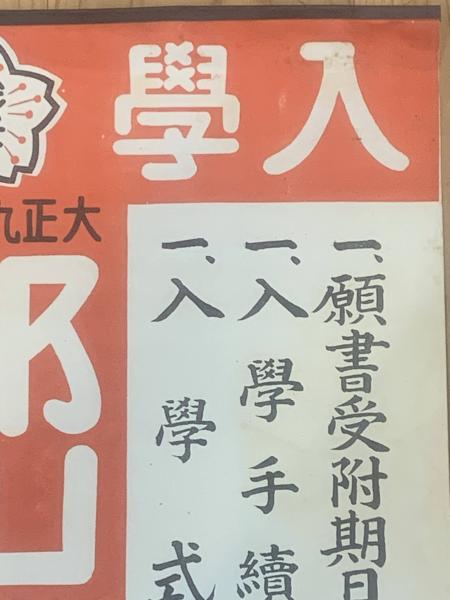 入學
一、願書受附期日
一、入學手續
一、入學式
大正九